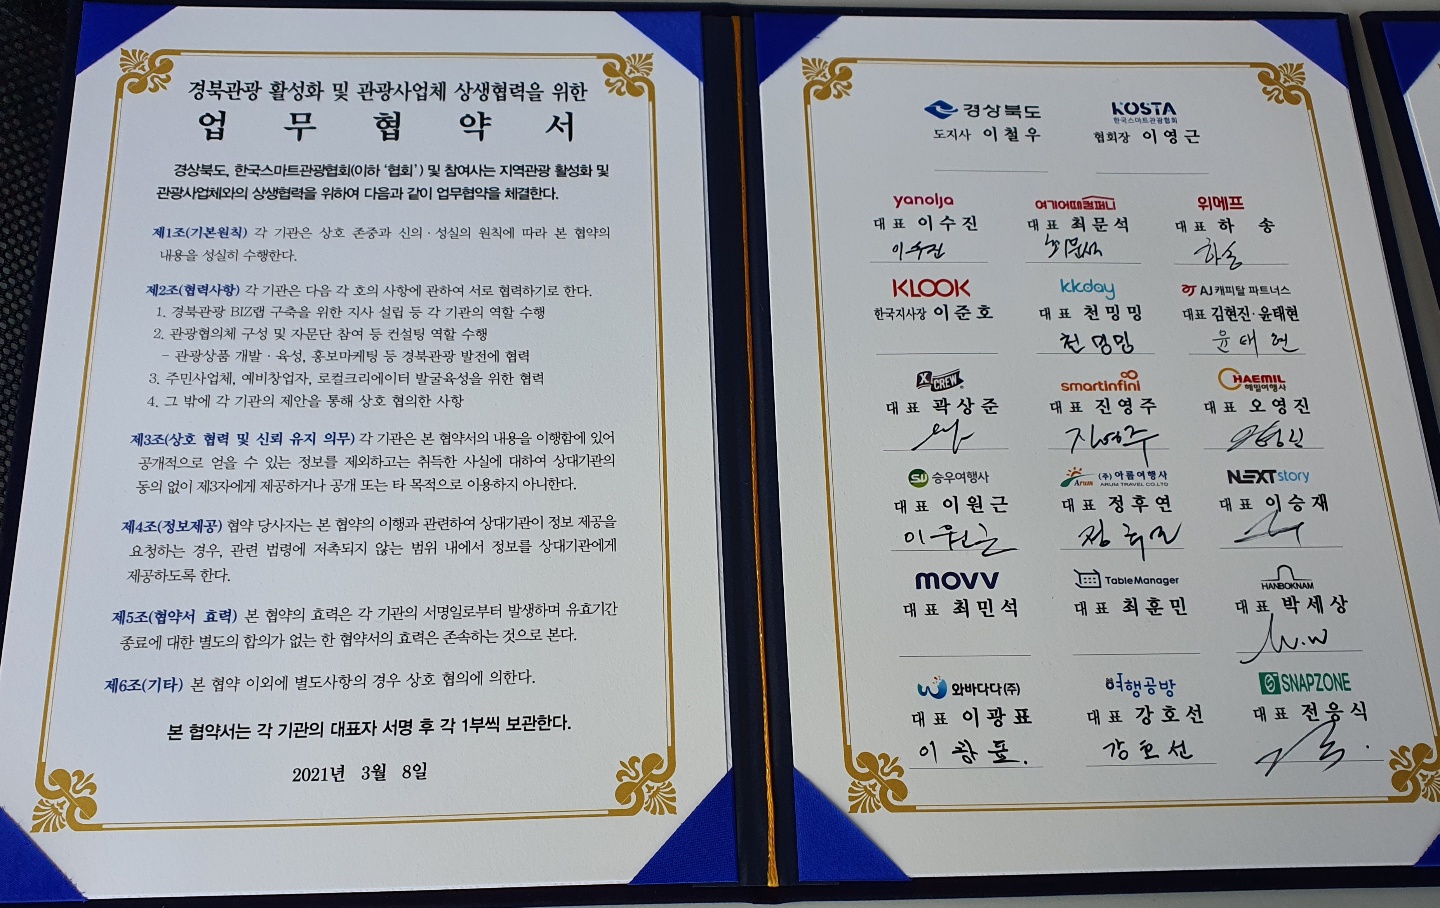 경북관광 활성화 및 관광사업체 상생협력을 위한
업 무 협 약 서
경상북도, 한국스마트관광협회(이하 '협회') 및 참여사는 지역관광 활성화 및
관광사업체와의 상생협력을 위하여 다음과 같이 업무협약을 체결한다.
제1조(기본원칙) 각 기관은 상호 존중과 신의·성실의 원칙에 따라 본 협약의
내용을 성실히 수행한다.
제2조(협력사항) 각 기관은 다음 각 호의 사항에 관하여 서로 협력하기로 한다.
1. 경북관광 BIZ랩 구축을 위한 지사 설립 등 각 기관의 역할 수행
2. 관광협의체 구성 및 자문단 참여 등 컨설팅 역할 수행
- 관광상품 개발·육성, 홍보마케팅 등 경북관광 발전에 협력
3. 주민사업체, 예비창업자, 로컬크리에이터 발굴육성을 위한 협력
4. 그 밖에 각 기관의 제안을 통해 상호 협의한 사항
제3조(상호 협력 및 신뢰 유지 의무) 각 기관은 본 협약서의 내용을 이행함에 있어
공개적으로 얻을 수 있는 정보를 제외하고는 취득한 사실에 대하여 상대기관의
동의 없이 제3자에게 제공하거나 공개 또는 타 목적으로 이용하지 아니한다.
제4조(정보제공) 협약 당사자는 본 협약의 이행과 관련하여 상대기관이 정보 제공을
요청하는 경우, 관련 법령에 저촉되지 않는 범위 내에서 정보를 상대기관에게
제공하도록 한다.
제5조(협약서 효력) 본 협약의 효력은 각 기관의 서명일로부터 발생하며 유효기간
종료에 대한 별도의 합의가 없는 한 협약서의 효력은 존속하는 것으로 본다.
제6조(기타) 본 협약 이외에 별도사항의 경우 상호 협의에 의한다.
본 협약서는 각 기관의 대표자 서명 후 각 1부씩 보관한다.
2021년 3월 8일
경상북도 KOSTA
한국스마트관광협회
도지사 이철우 협회장 이영근
yanolja 여기어때컴퍼니 위메프
대표 이수진 대표 최문석 대표 하 송
이수진 최문석 하송
KLOOK kkday AJ캐피탈 파트너스
한국지사장 이준호 대표 천밍밍 대표 김현진·윤태현
천밍밍 윤태현
X CREW smartinfini HAEMIL 해밀여행사
대표 곽상준 대표 진영주 대표 오영진
진영주
SW 승우여행사 Arum (주)아름여행사 ARUM TRAVEL CO.LTD NEXT story
대표 이원근 대표 정후연 대표 이승재
이원근 정후연
MOVV TableManager HANBOKNAM
대표 최민석 대표 최훈민 대표 박세상
와바다다(주) 여행공방 SNAPZONE
대표 이광표 대표 강호선 대표 전응식
이광표. 강호선